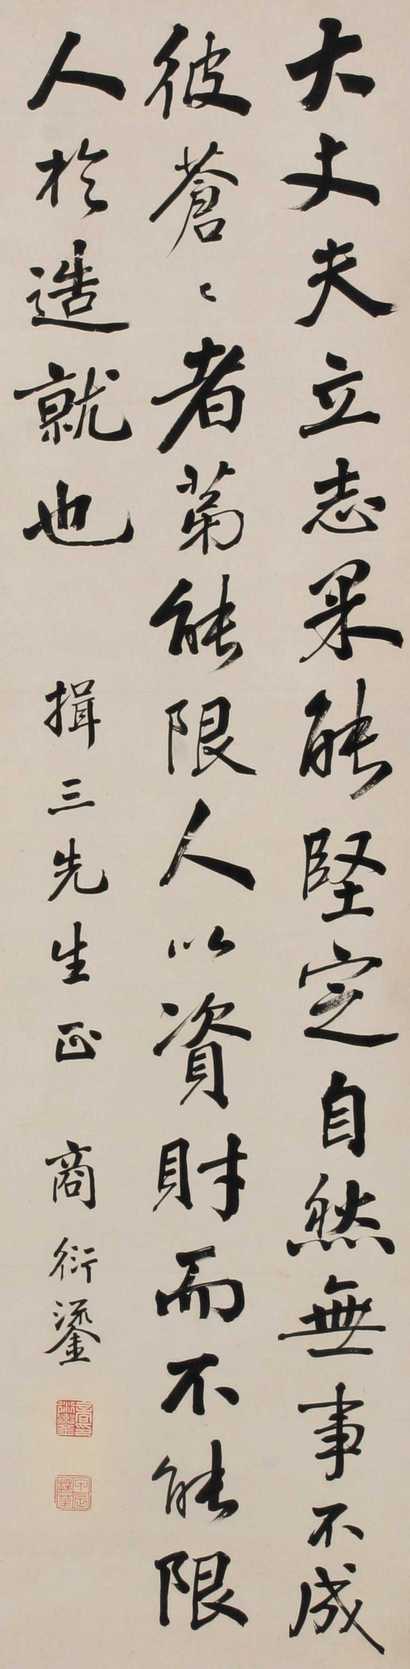 大丈夫立志果能堅定自然無事不成
彼蒼〻者第能限人以資財而不能限
人於造就也
揖三先生正 商衍鎏